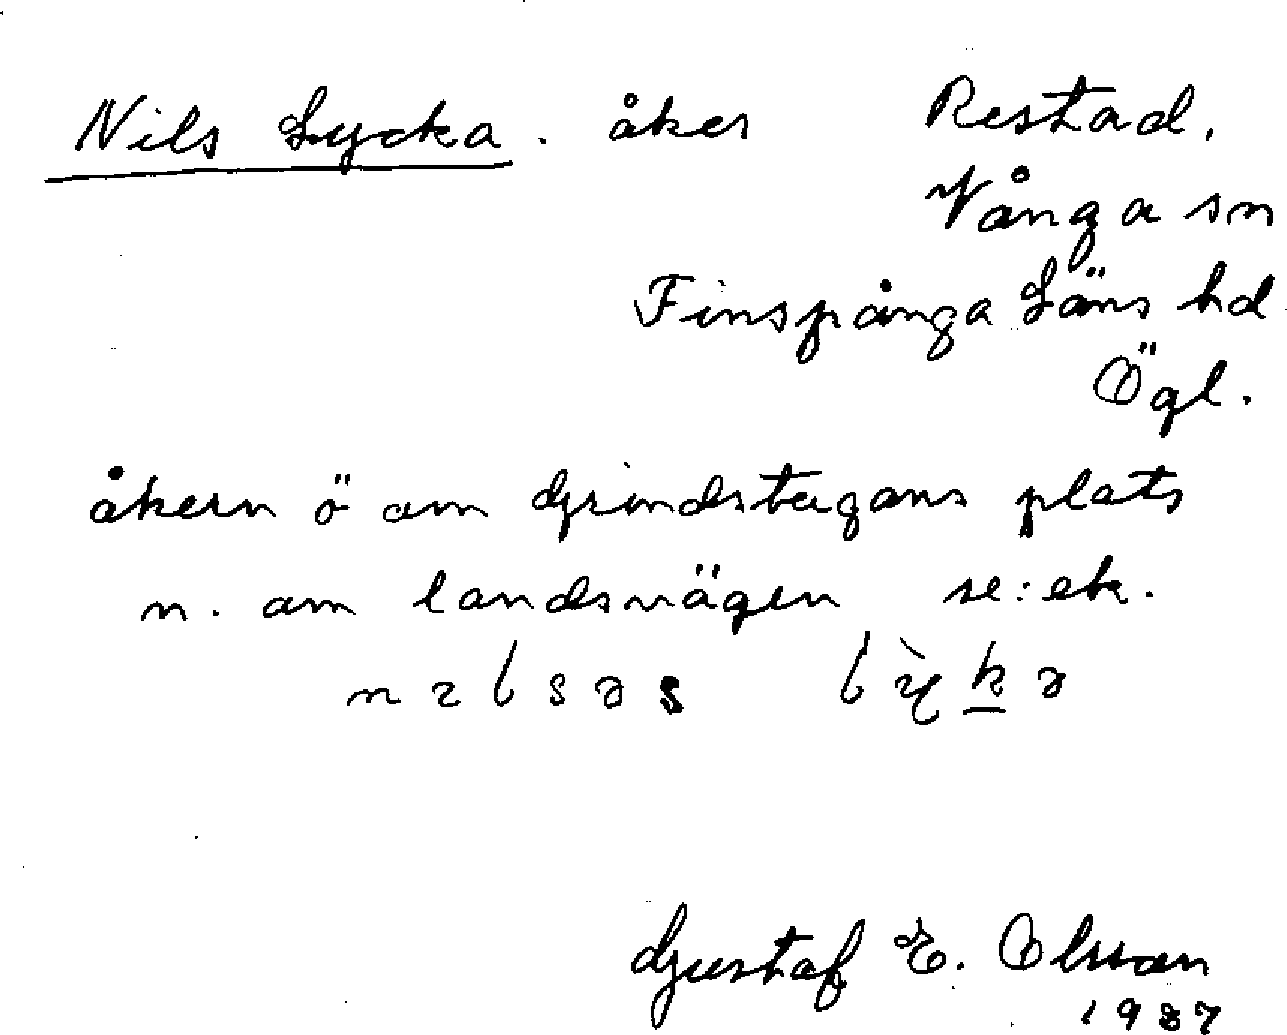 Nils Lycka. åker Restad,
Vånga sn
Finspånga Läns hd
Ögl.
åkern ö om Grindstugans plats
n. om landsvägen se: ek.
Gustaf E. Olsson
1937